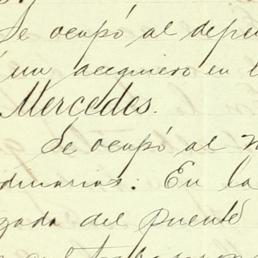 Se ocupó al depen
un acequiero en l
Mercedes.
Se ocupó al
dinarios: En la
zada del puente